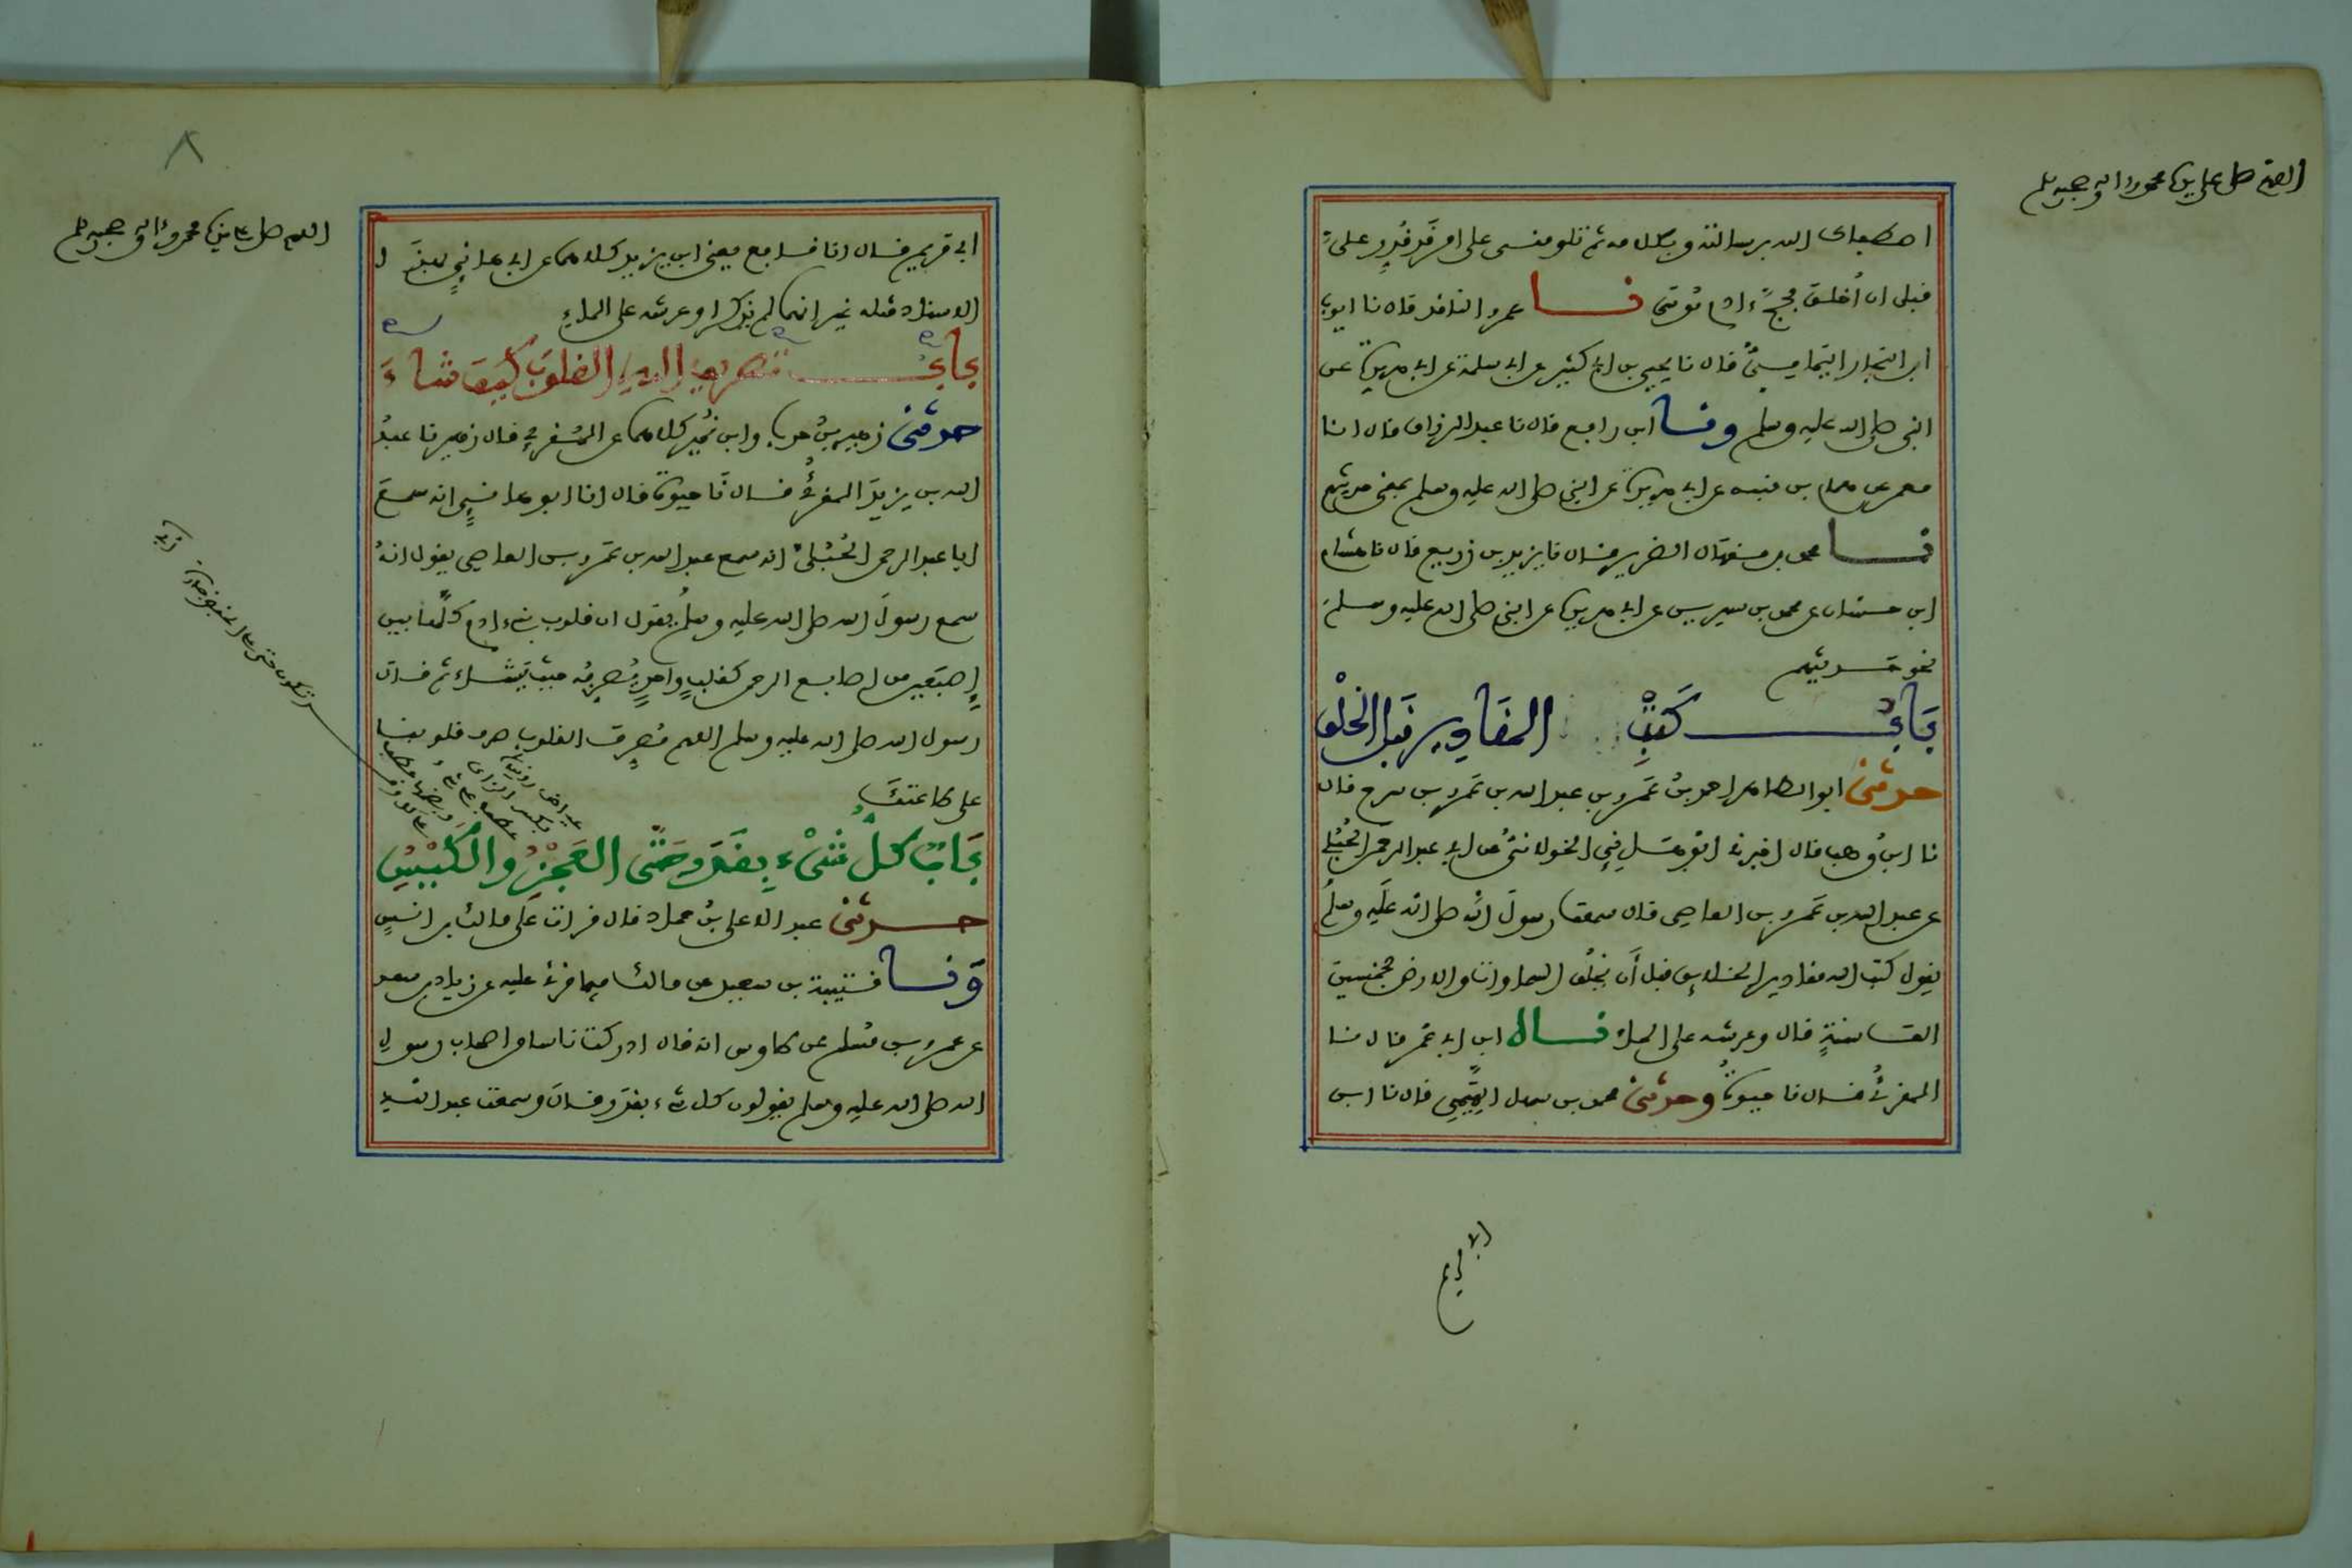 اللهم صل على سيدنا محمد وءاله وصحبه وسلم
اصطفاك الله برسالته وبكلامه ثم تلومنى على امر قد قُدِّر علىَّ
قبل ان أُخلق فحجَّ ءادم موسى نا عمرو الناقد قال نا ايوب
ابن النجار اليمامىُّ قال نا يحيى بن ابى كثير عن ابى سلمة عن ابى هريرة عن
النبى صلى الله عليه وسلم ونا ابن رافع قال نا عبد الرزاق قال انا
معمر عن همام بن منبه عن ابى هريرة عن النبى صلى الله عليه وسلم بمعنى حديثهم
نا محمد بن منهال الضرير قال نا يزيد بن زريع قال نا هشام
ابن حسان عن محمد بن سيرين عن ابى هريرة عن النبى صلى الله عليه وسلم
نحو حديثهم
بَابُ كَتْبِ المقادير قبل الخلْق
حدثنى ابو الطاهر احمد بنُ عَمرو بن عبد الله بن عَمرو بن سرح قال
نا ابنُ وهب قال اخبرنى ابو هَانِى الخولانىُّ عن ابى عبد الرحمن الحُبُلى
عن عبد الله بن عَمرو بن العاصى قال سمعت رسولَ الله صلى الله عليه وسلم
يقول كتب الله مقادير الخلائق قبل أن يخلُق السماوات والارض بخمسين
الف سنةٍ قال وعرشه على الماء نا ابن ابى عمر قال نا
المقرئُ قال نا حيوةُ وحدثنى محمد بن سهل التَّمِيمى قال نا ابن
ابى مريم قال انا نافع يعنى ابن يزيد كلاهما عن ابى هانىٍ بهذَا
الاسناد مثله غير انهما لم يذكرا وعرشه على الماءِ
بابُ تصريف اللهِ القلوبَ كيفَ شاءَ
حدثنى زهير بنُ حرب وابن نُمير كلاهما عن المُقرِئ قال زهير نا عبدُ
الله بن يزيدَ المقرئُ قال نَا حيوة قال انا ابو هانىٍ انه سمع
ابا عبد الرحمن الحُبُلىَّ انه سمع عبد الله بن عَمرو بن العاصى يقول انهُ
سمع رسولَ الله صلى الله عليه وسلم يقول ان قلوب بنى ءادم كلَّها بين
إصبَعين من اصابع الرحمن كقلبٍ واحدٍ يُصرِّفه حيث يَشاء ثم قال
رسول الله صلى الله عليه وسلم اللهم مُصرِّف القلوبِ صرف قلوبنا
على طاعتكَ
بَابٌ كلُّ شَىْءٍ بِقَدَرٍ حَتَّى العَجْزُ والكَيْسُ
حدثنى عبد الاعلى بنُ حماد قال قرات عَلى مالك بن انسٍ
وَنا قتيبة بن سعيد عن مالك فيما قرئ عليه عن زياد بن سعد
عن عمرو بن مُسلم عن طاوس انه قال ادركت ناسا من اصحاب رسول
الله صلى الله عليه وسلم يقولون كل شىء بقدَر قال وسمعت عبد الله
اللهم صل على سيدنا محمد وءاله وصحبه وسلم